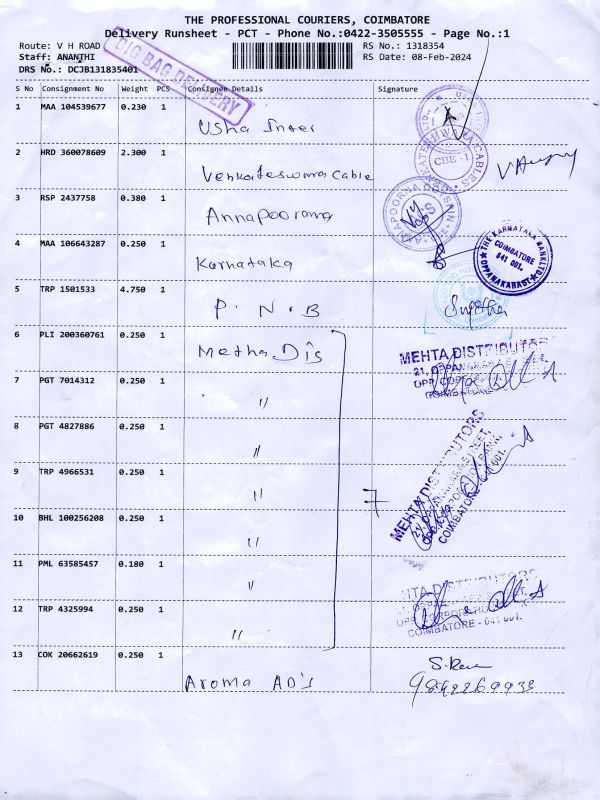 THE PROFESSIONAL COURIERS, COIMBATORE
Delivery Runsheet - PCT - Phone No.:0422-3505555 - Page No.:1
Route: V H ROAD
RS No.: 1318354
Staff: ANANTHI
RS Date: 08-Feb-2024
DRS No.: DCJB131835401
BIG BAG DELIVERY
S No Consignment No Weight PCS Consignee Details Signature
1 MAA 104539677 0.230 1
Usha Inter
2 HRD 360078609 2.300 1
Venkateswara Cable
CBE -1
3 RSP 2437758 0.380 1
Annapoorana
4 MAA 106643287 0.250 1
Karnataka
THE KARNATAKA BANK LTD
COIMBATORE
641 001.
OPPANAKARAST
5 TRP 1501533 4.750 1
P. N. B
6 PLI 200360761 0.250 1
Metha Dis
MEHTA DISTRIBUTORS
7 PGT 7014312 0.250 1
"
8 PGT 4827886 0.250 1
"
9 TRP 4966531 0.250 1
"
7
MEHTA DISTRIBUTORS
COIMBATORE - 641 001.
10 BHL 100256208 0.250 1
"
11 PML 63585457 0.180 1
"
MEHTA DISTRIBUTORS
12 TRP 4325994 0.250 1
"
COIMBATORE - 641 001.
13 COK 20662619 0.250 1
Aroma AD's